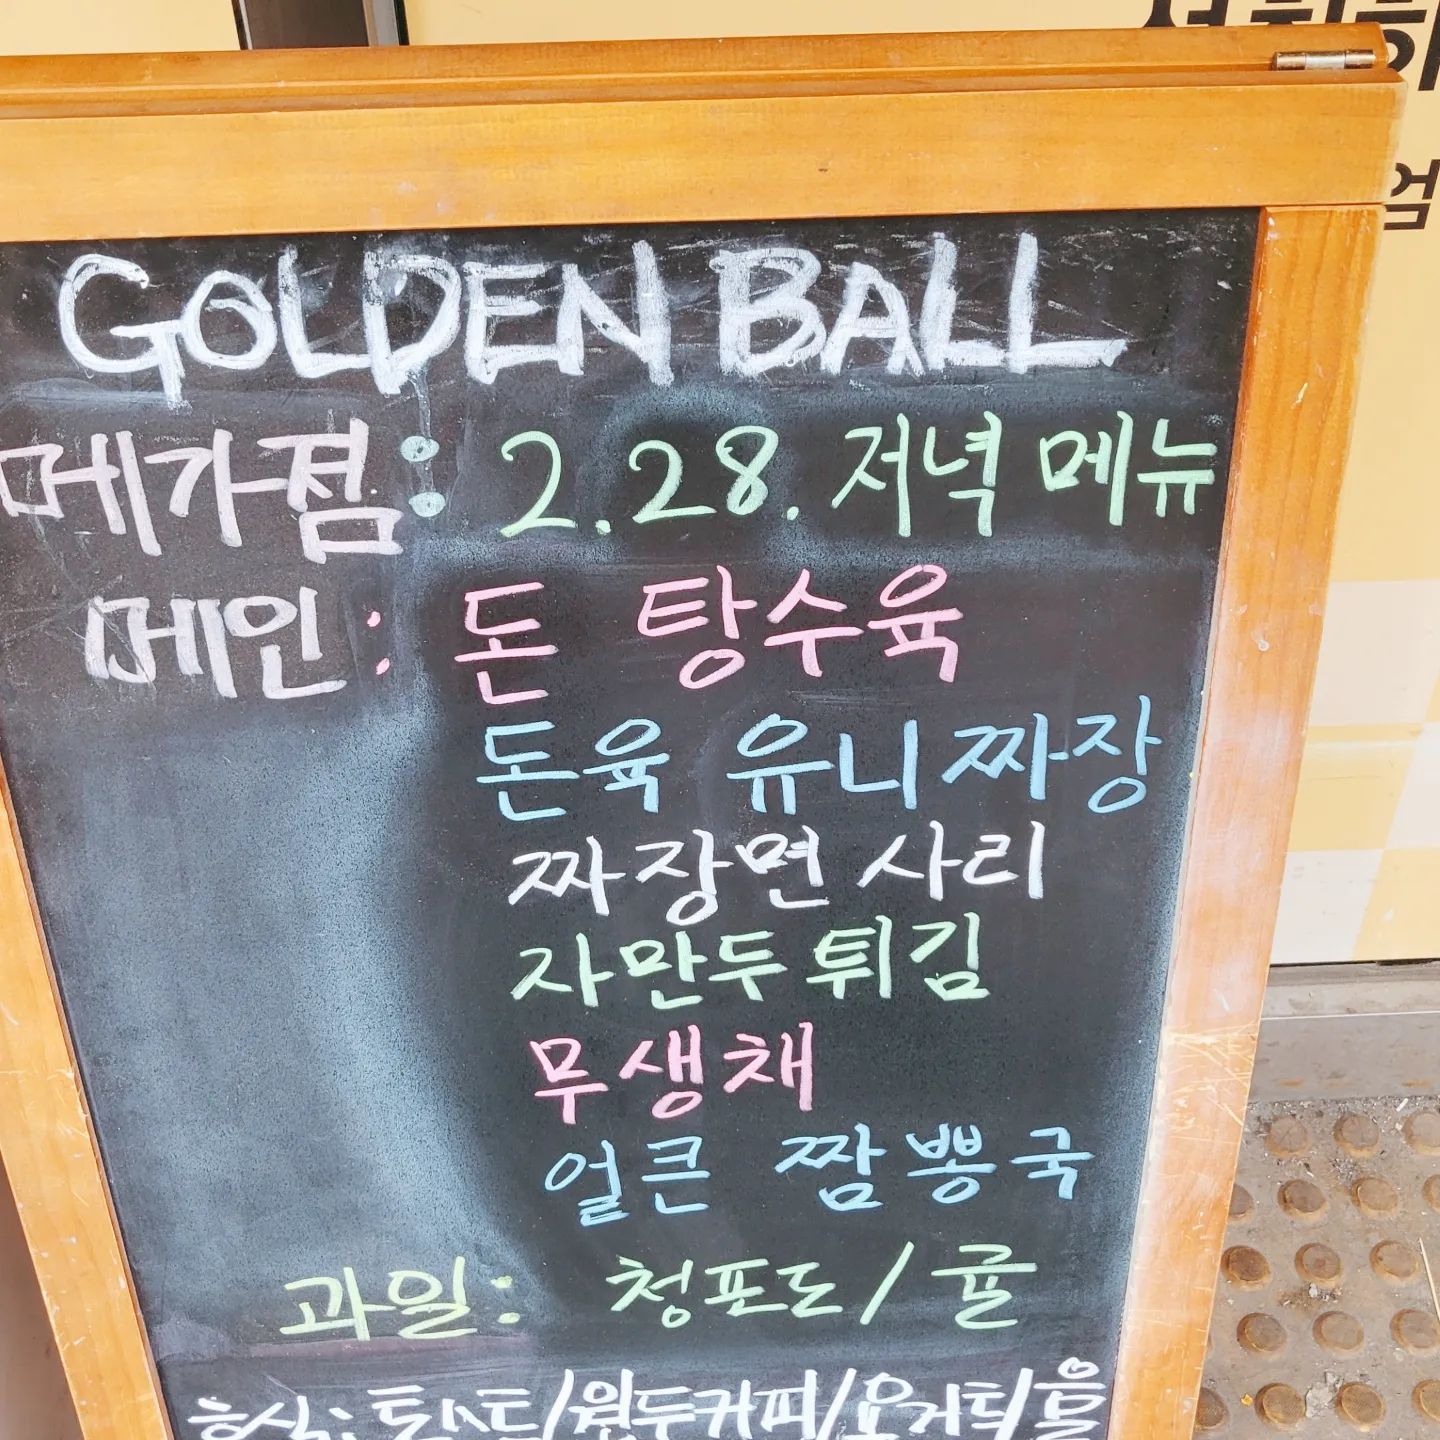 GOLDEN BALL
메가점: 2.28. 저녁 메뉴
메인: 돈 탕수육
돈육 유니짜장
짜장면 사리
자만두 튀김
무생채
얼큰 짬뽕국
과일: 청포도/귤
후식: 토스트/원두커피/요거트/음
업